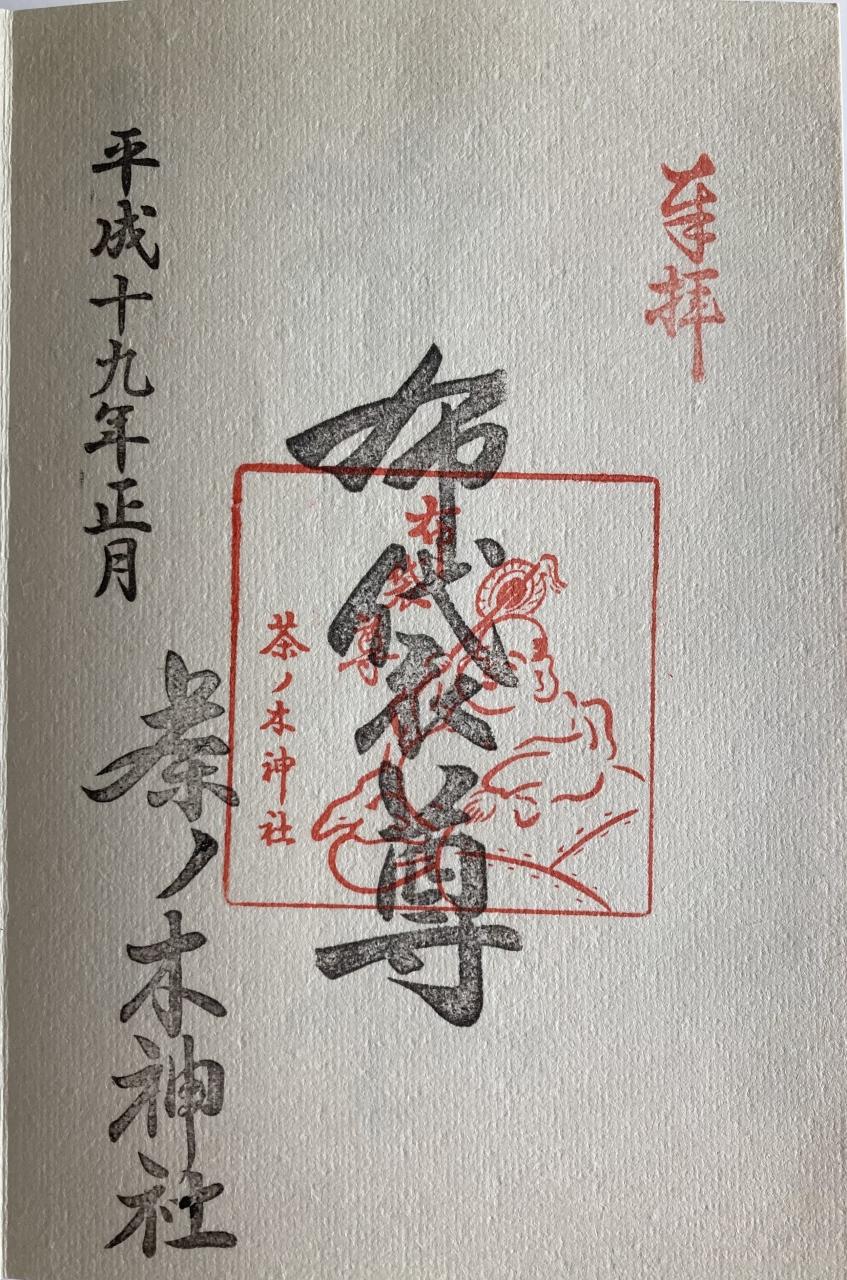 奉拝
布袋尊
布袋尊
茶ノ木神社
平成十九年正月
茶ノ木神社